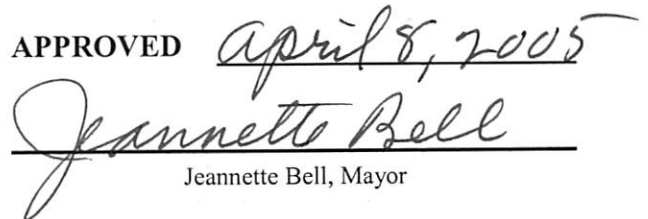 APPROVED April 8, 2005
Jeannette Bell
Jeannette Bell, Mayor